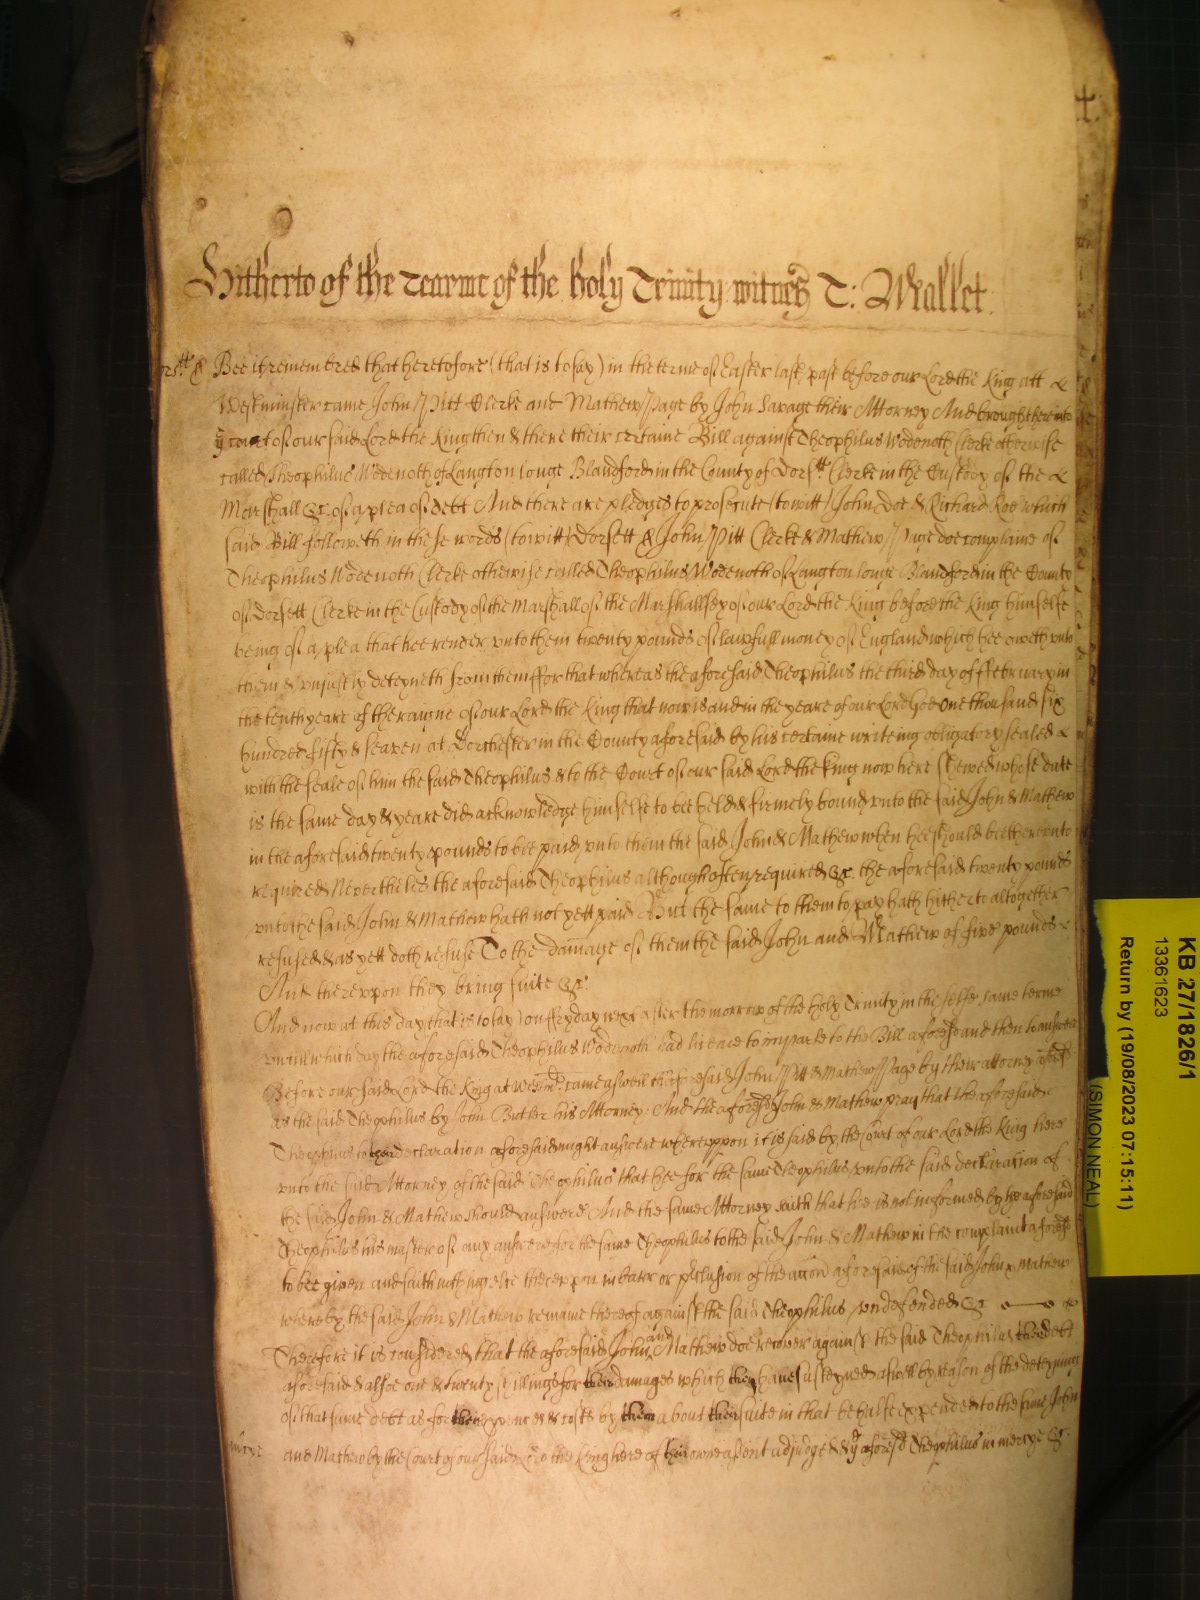 Hitherto of the Tearme of the holy Trinity witnes T: Mallet.
Dorstt ss Bee it remembred that heretofore (that is to say) in the terme of Easter last past before our Lord the King att
Westminster came John Pitt Clerke and Mathew Page by John Savage their Attorney And brought there into
ye court of our said Lord the King then & there their certaine Bill against Theophilus Wodenoth Clerke otherwise
called Theophilus Wodenoth of Langton longe Blandford in the County of Dorstt Clerke in the Custody of the
Marshall &c. of a plea of debt And there are pledges to prosecute (to witt) John Doe & Richard Roe which
said Bill followeth in these words (to witt) Dorsett ss John Pitt Clerke & Mathew Page doe complaine of
Theophilus Wodenoth Clerke otherwise called Theophilus Wodenoth of Langton longe Blandford in the County
of Dorsett Clerke in the Custody of the Marshall of the Marshallsey of our Lord the King before the King himselfe
being of a plea that hee render unto them twenty pounds of lawfull money of England which hee oweth unto
them & unjustly deteyneth from them ffor that whereas the aforesaid Theophilus the third day of ffebruary in
the tenth yeare of the raigne of our Lord the King that now is and in the yeare of our Lord God one thousand six
hundred fifty & seaven at Dorchester in the County aforesaid by his certaine writeing obligatory sealed
with the seale of him the said Theophilus & to the Court of our said Lord the King now here shewed whose date
is the same day & yeare did acknowledge himselfe to bee held & firmely bound unto the said John & Mathew
in the aforesaid twenty pounds to bee paid unto them the said John & Mathew when hee should bee thereunto
required Neverthelis the aforesaid Theophilus although often required &c. the aforesaid twenty pounds
unto the said John & Mathew hath not yett paid But the same to them to pay hath hitherto altogether
refused & as yett doth refuse To the damage of them the said John and Mathew of five pounds
And thereupon they bring suite &c.
And now at this day (that is to say) on ffryday next after the morrow of the holy Trinity in the selfe same terme
untill which day the aforesaid Theophilus Wodenoth had licence to imparle to the Bill aforesd and then to answere
Before our said Lord the King at Westmr. came aswell the aforesaid John Pitt & Mathew Page by their attorney aforesd
as the said Theophilus by John Butler his Attorney. And the aforesd John & Mathew pray that the aforesaid
Theophilus to their declaration aforesaid might answere whereuppon it is said by the Court of our Lord the King here
unto the said Attorney of the said Theophilus that hee for the same Theophilus unto the said declaration of
the said John & Mathew should answere And the same Attorney saith that he is not informed by the aforesaid
Theophilus his master of any answere for the same Theophilus to the said John & Mathew in the complaint aforesd
to bee given and saith nothing else thereupon in barr or preclusion of the accon aforesaid of the said John & Mathew
whereby the said John & Mathew remaine thereof against the said Theophilus undefended &c
Therefore it is considered that the aforesaid John and Mathew doe recover against the said Theophilus their debt
aforesaid & alsoe one & twenty shillings for their damages which they have susteyned aswell by reason of the deteyning
of that same debt as for their expences & costs by them about their suite in that behalfe expended to the same John
mercye and Mathew by the Court of our said Lord the King here of their owne assent adjudged & ye aforesd Theophilus in mercye &c.
KB 27/1826/1
13361623
Return by (19/08/2023 07:15:11)
(SIMON NEAL)